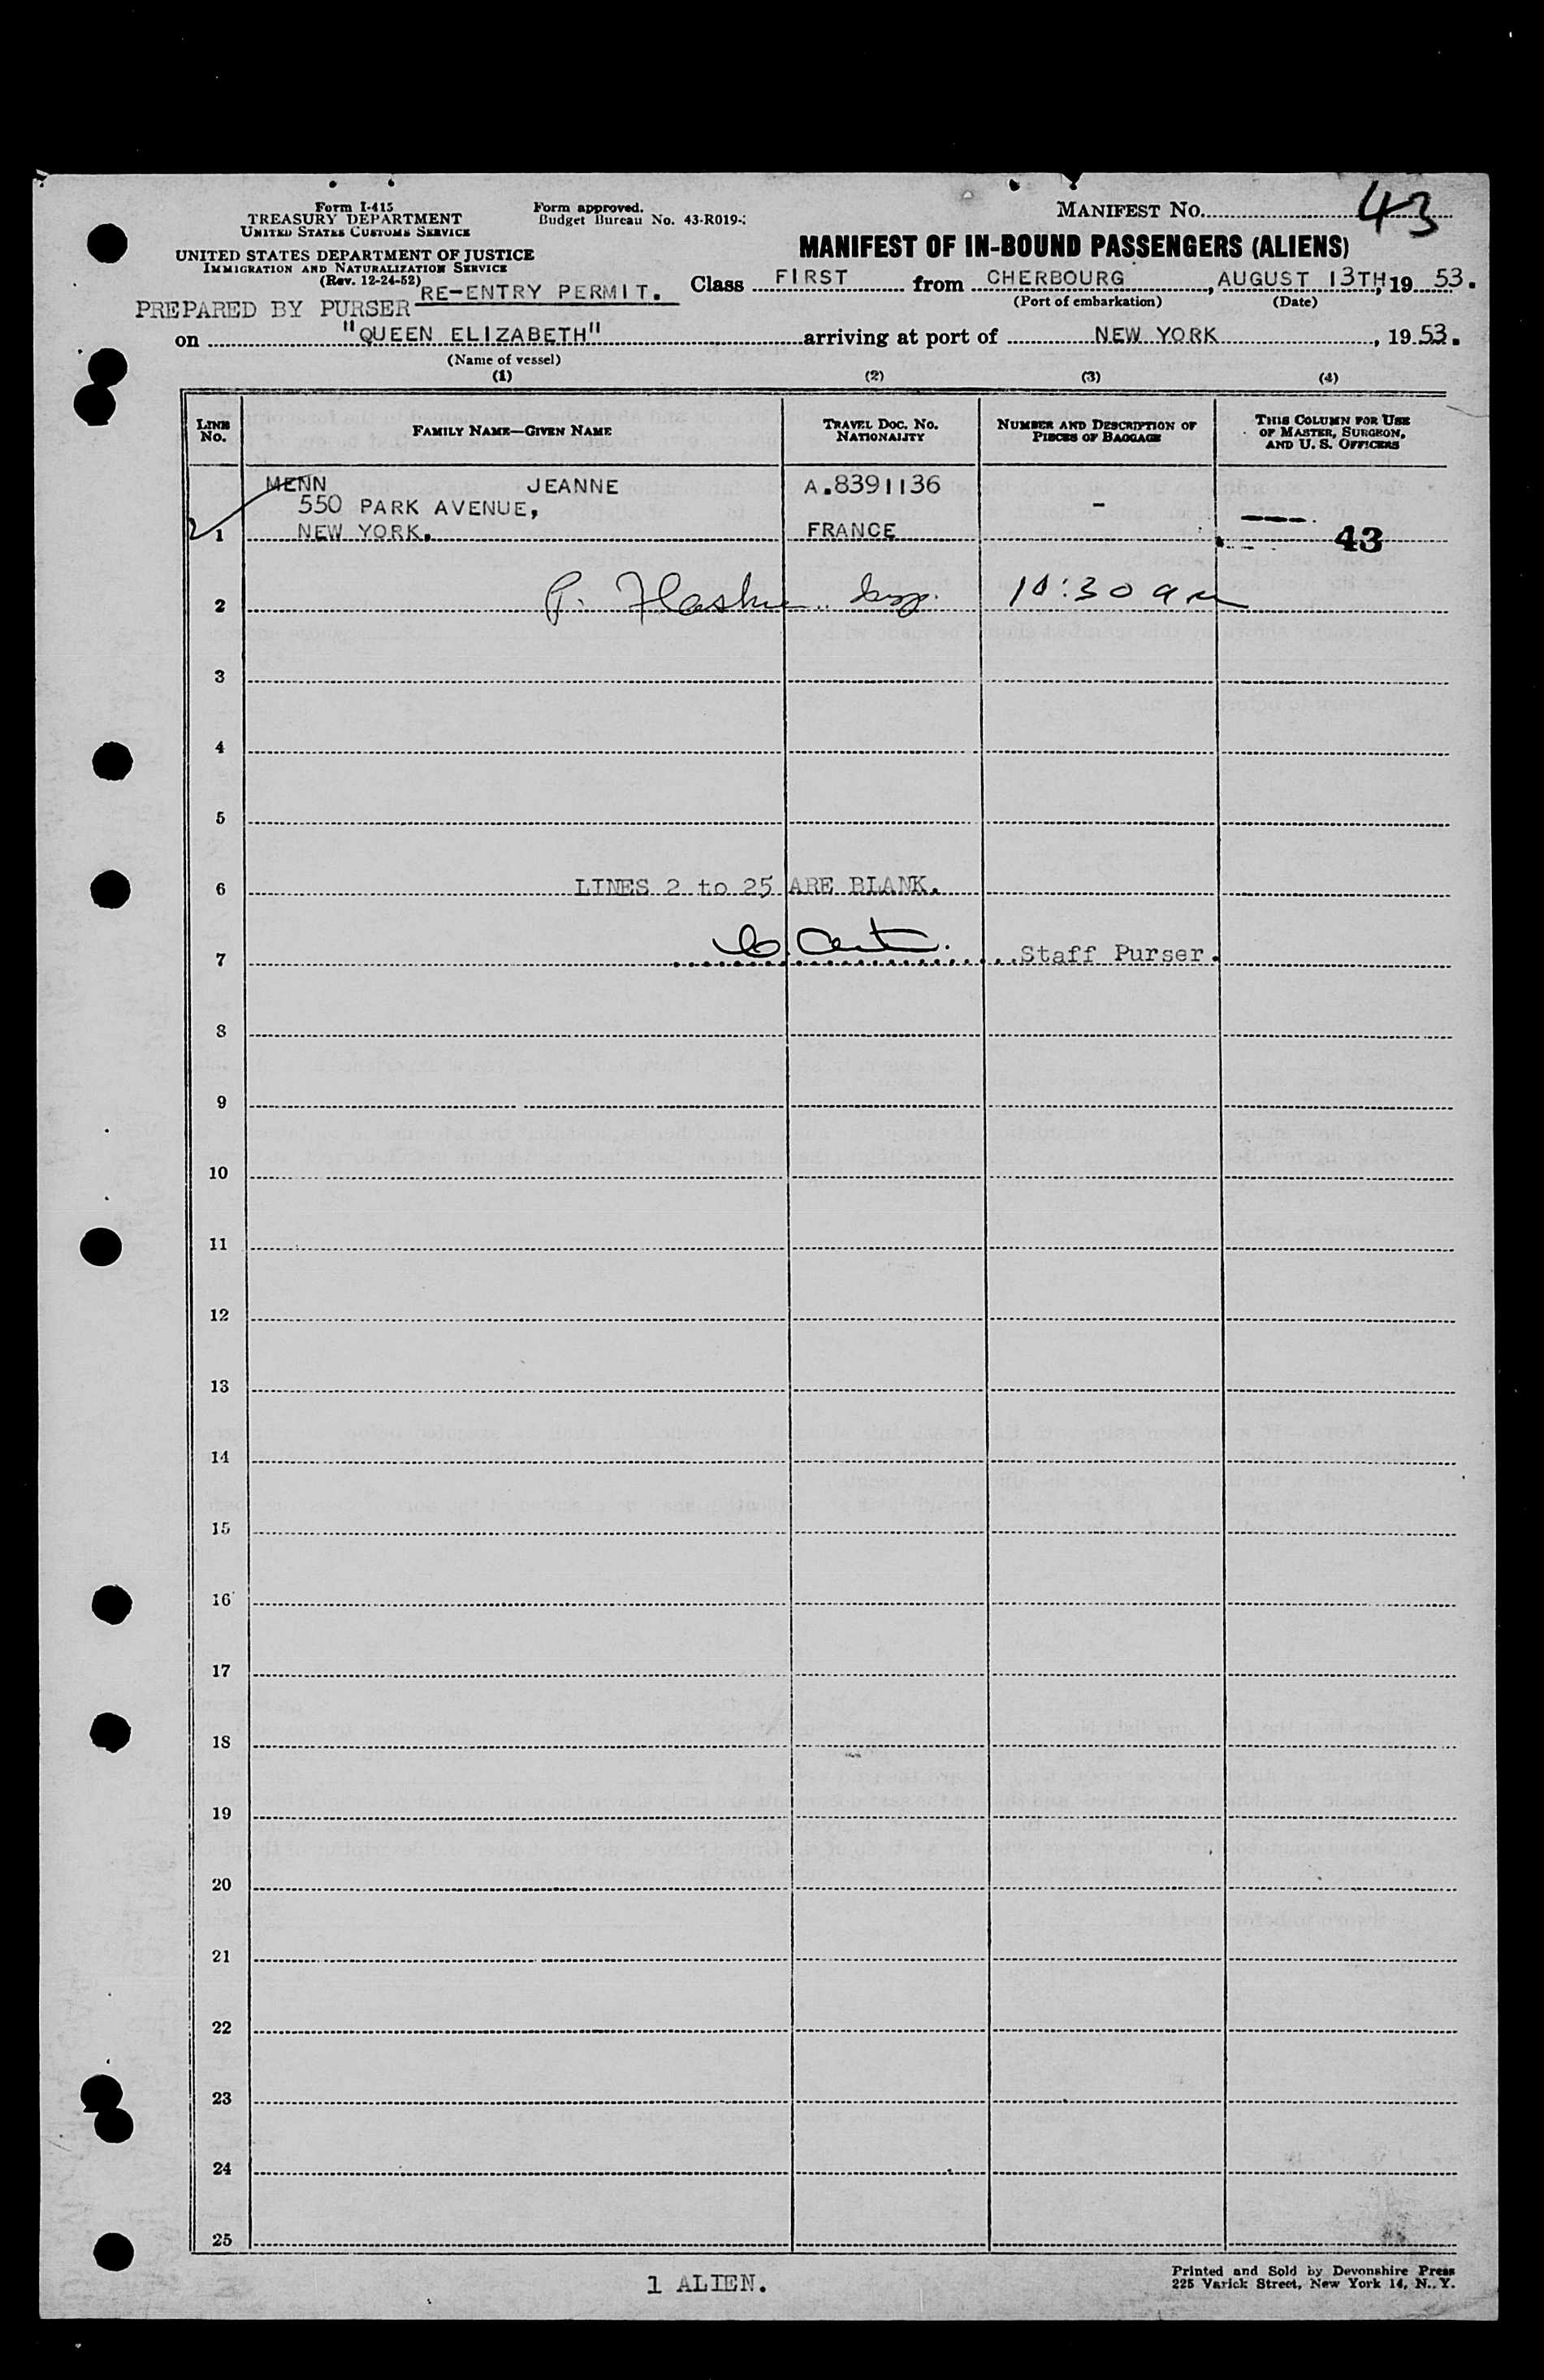 Form I-415
TREASURY DEPARTMENT
UNITED STATES CUSTOMS SERVICE
Form approved.
Budget Bureau No. 43-R019-
MANIFEST NO. 43
UNITED STATES DEPARTMENT OF JUSTICE
IMMIGRATION AND NATURALIZATION SERVICE
(Rev. 12-24-52)
MANIFEST OF IN-BOUND PASSENGERS (ALIENS)
PREPARED BY PURSER RE-ENTRY PERMIT.
Class FIRST from CHERBOURG, AUGUST 13TH, 19 53.
(Port of embarkation) (Date)
on "QUEEN ELIZABETH" arriving at port of NEW YORK, 19 53.
(Name of vessel)
(1) (2) (3) (4)
LINE No. FAMILY NAME—GIVEN NAME TRAVEL DOC. NO. NATIONALITY NUMBER AND DESCRIPTION OF PIECES OF BAGGAGE THIS COLUMN FOR USE OF MASTER, SURGEON, AND U. S. OFFICERS
MENN JEANNE A.8391136
550 PARK AVENUE, -
1 NEW YORK. FRANCE 43
2 10:30 am
3
4
5
6 LINES 2 to 25 ARE BLANK.
7 Staff Purser.
8
9
10
11
12
13
14
15
16
17
18
19
20
21
22
23
24
25
1 ALIEN.
Printed and Sold by Devonshire Press
225 Varick Street, New York 14, N. Y.